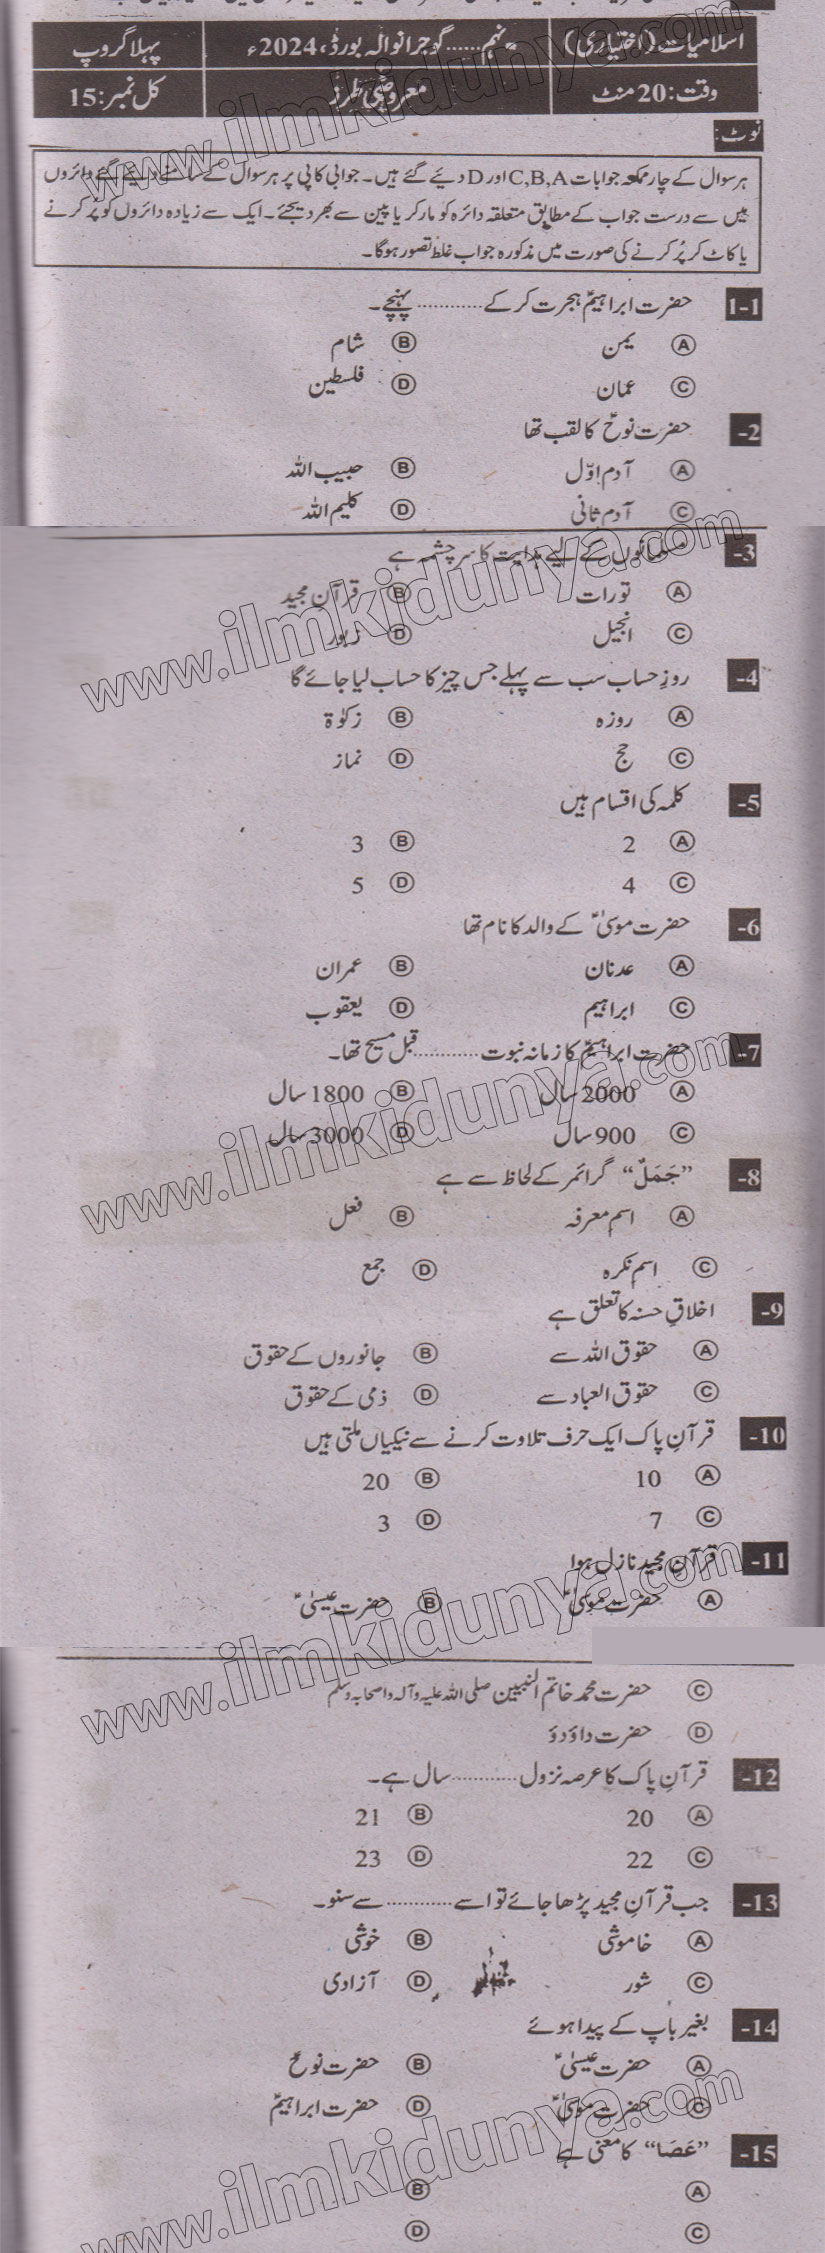 اسلامیات (اختیاری) نہم......گوجرانوالہ بورڈ، 2024ء پہلا گروپ
وقت: 20 منٹ معروضی طرز کل نمبر: 15
نوٹ:
ہر سوال کے چار ممکنہ جوابات C,B,A اور D دیئے گئے ہیں۔ جوابی کاپی پر ہر سوال کے سامنے دیئے گئے دائروں
میں سے درست جواب کے مطابق متعلقہ دائرہ کو مارکر یا پین سے بھر دیجئے۔ ایک سے زیادہ دائروں کو پُر کرنے
یا کاٹ کر پُر کرنے کی صورت میں مذکورہ جواب غلط تصور ہوگا۔
1-1 حضرت ابراہیمؑ ہجرت کر کے ........... پہنچے۔
A یمن B شام
C عمان D فلسطین
2- حضرت نوحؑ کا لقب تھا
A آدم اوّل B حبیب اللہ
C آدم ثانی D کلیم اللہ
3- مسلمانوں کے لیے ہدایت کا سرچشمہ ہے
A تورات B قرآن مجید
C انجیل D زبور
4- روزِ حساب سب سے پہلے جس چیز کا حساب لیا جائے گا
A روزہ B زکوٰۃ
C حج D نماز
5- کلمہ کی اقسام ہیں
A 2 B 3
C 4 D 5
6- حضرت موسیٰؑ کے والد کا نام تھا
A عدنان B عمران
C ابراہیم D یعقوب
7- حضرت ابراہیمؑ کا زمانہ نبوت ........... قبل مسیح تھا۔
A 2000 سال B 1800 سال
C 900 سال D 3000 سال
8- ”جَمَلٌ“ گرائمر کے لحاظ سے ہے
A اسم معرفہ B فعل
C اسم نکرہ D جمع
9- اخلاقِ حسنہ کا تعلق ہے
A حقوق اللہ سے B جانوروں کے حقوق
C حقوق العباد سے D ذمی کے حقوق
10- قرآنِ پاک ایک حرف تلاوت کرنے سے نیکیاں ملتی ہیں
A 10 B 20
C 7 D 3
11- قرآن مجید نازل ہوا
A حضرت موسیٰؑ B حضرت عیسیٰؑ
C حضرت محمد خاتم النبیین صلی اللہ علیہ وآلہ واصحابہ وسلم
D حضرت داؤدؑ
12- قرآنِ پاک کا عرصہ نزول ........... سال ہے۔
A 20 B 21
C 22 D 23
13- جب قرآنِ مجید پڑھا جائے تو اسے ........... سے سنو۔
A خاموشی B خوشی
C شور D آزادی
14- بغیر باپ کے پیدا ہوئے
A حضرت عیسیٰؑ B حضرت نوحؑ
C حضرت موسیٰؑ D حضرت ابراہیمؑ
15- ”عَصَا“ کا معنی ہے
A B
C D
www.ilmkidunya.com
www.ilmkidunya.com
www.ilmkidunya.com
www.ilmkidunya.com
www.ilmkidunya.com